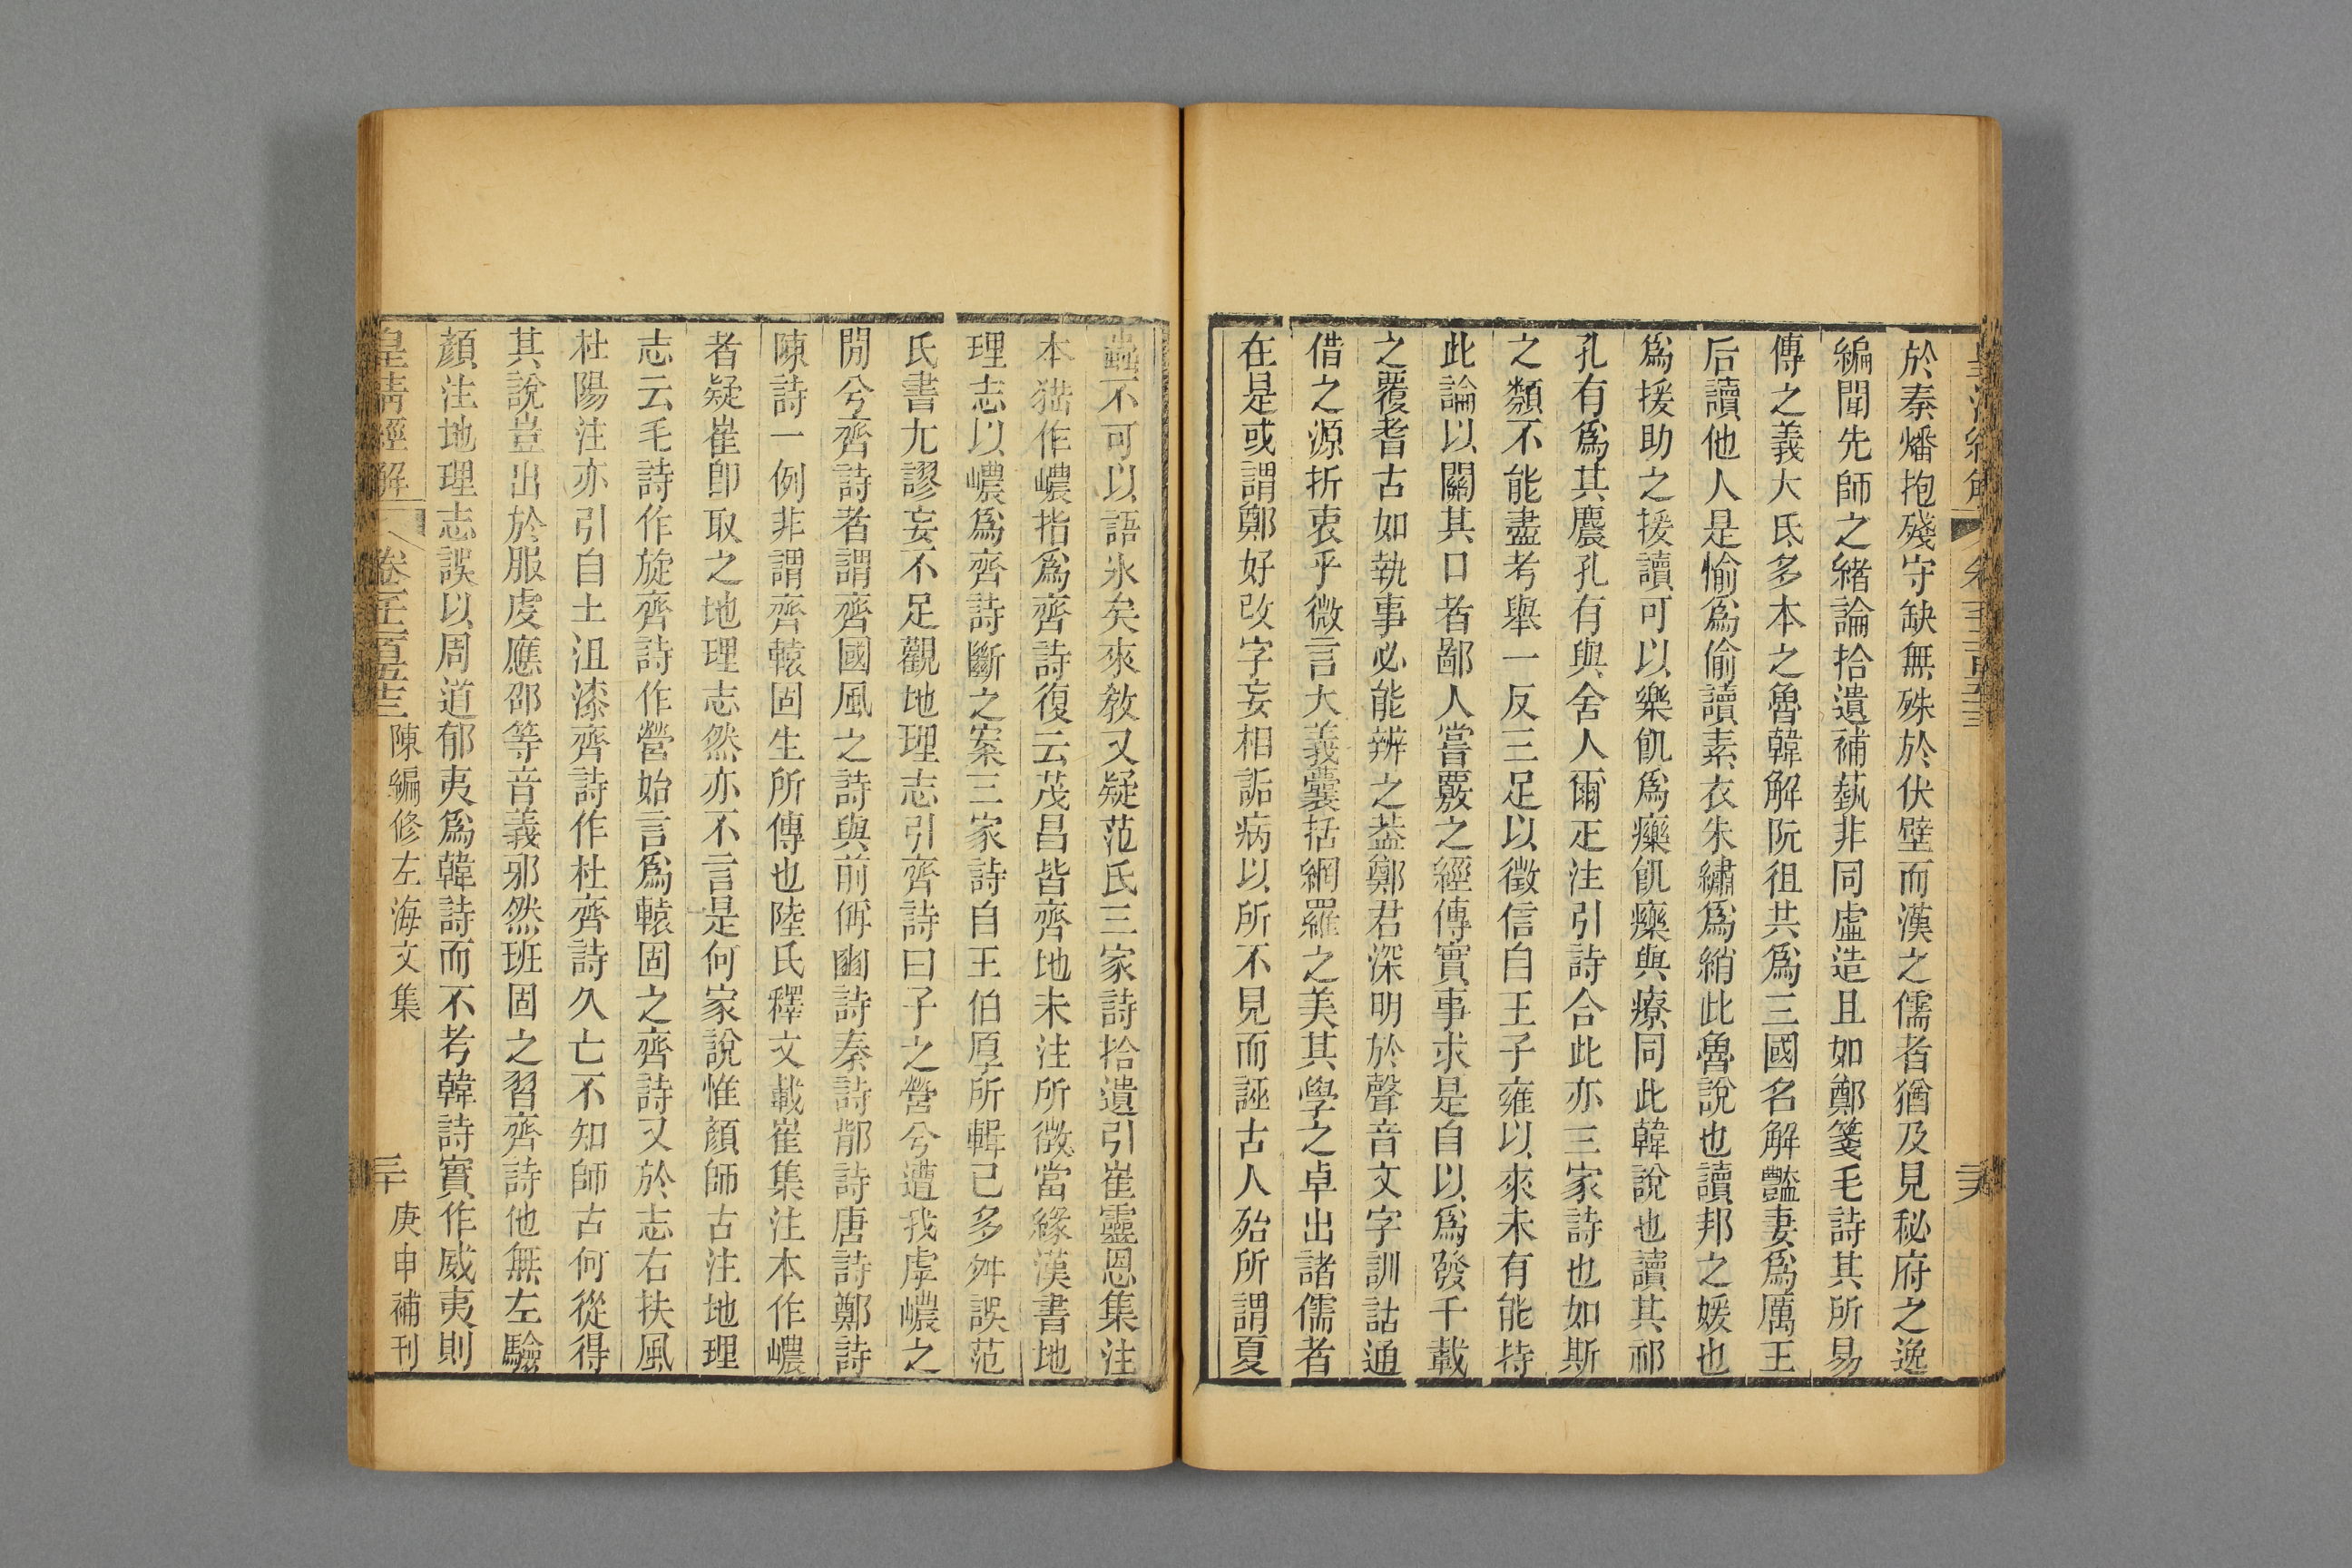 於秦燔抱殘守缺無殊於伏壁而漢之儒者猶及見秘府之逸
編聞先師之緒論拾遺補蓺非同虛造且如鄭箋毛詩其所易
傳之義大氐多本之魯韓解阮徂共爲三國名解豔妻爲厲王
后讀他人是愉爲偷讀素衣朱繡爲綃此魯說也讀邦之媛也
爲援助之援讀可以樂飢爲𤻲飢𤻲與療同此韓說也讀其祁
孔有爲其麎孔有與舍人爾疋注引詩合此亦三家詩也如斯
之類不能盡考舉一反三足以徵信自王子雍以來未有能持
此論以關其口者鄙人嘗覈之經傳實事求是自以爲發千載
之覆耆古如執事必能辨之葢鄭君深明於聲音文字訓詁通
借之源折衷乎微言大義囊括網羅之美其學之卓出諸儒者
在是或謂鄭好改字妄相詬病以所不見而誣古人殆所謂夏
蟲不可以語氷矣來敎又疑范氏三家詩拾遺引崔靈恩集注
本猺作巎指爲齊詩復云茂昌皆齊地未注所徴當緣漢書地
理志以巎爲齊詩斷之案三家詩自王伯厚所輯已多舛誤范
氏書尢謬妄不足觀地理志引齊詩曰子之營兮遭我虖巎之
閒兮齊詩者謂齊國風之詩與前偁豳詩秦詩鄁詩唐詩鄭詩
陳詩一例非謂齊轅固生所傳也陸氏釋文載崔集注本作巎
者疑崔卽取之地理志然亦不言是何家說惟顏師古注地理
志云毛詩作旋齊詩作營始言爲轅固之齊詩又於志右扶風
杜陽注亦引自土沮漆齊詩作杜齊詩久亡不知師古何從得
其說豈出於服虔應邵等音義邪然班固之習齊詩他無左驗
顏注地理志誤以周道郁夷爲韓詩而不考韓詩實作威夷則
皇淸經解 卷一千二百五十三 陳編修左海文集 三十 庚申補刊